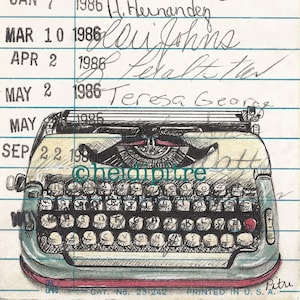 JAN 7 1986 H. Hernandez
MAR 10 1986 Lori Johns
APR 2 1986 L Peralta
MAY 2 1986 Teresa George
MAY 198
SEP 22 198
©heidipitre
CAT. NO. 23-242 PRINTED IN U. S. A.
Pitre